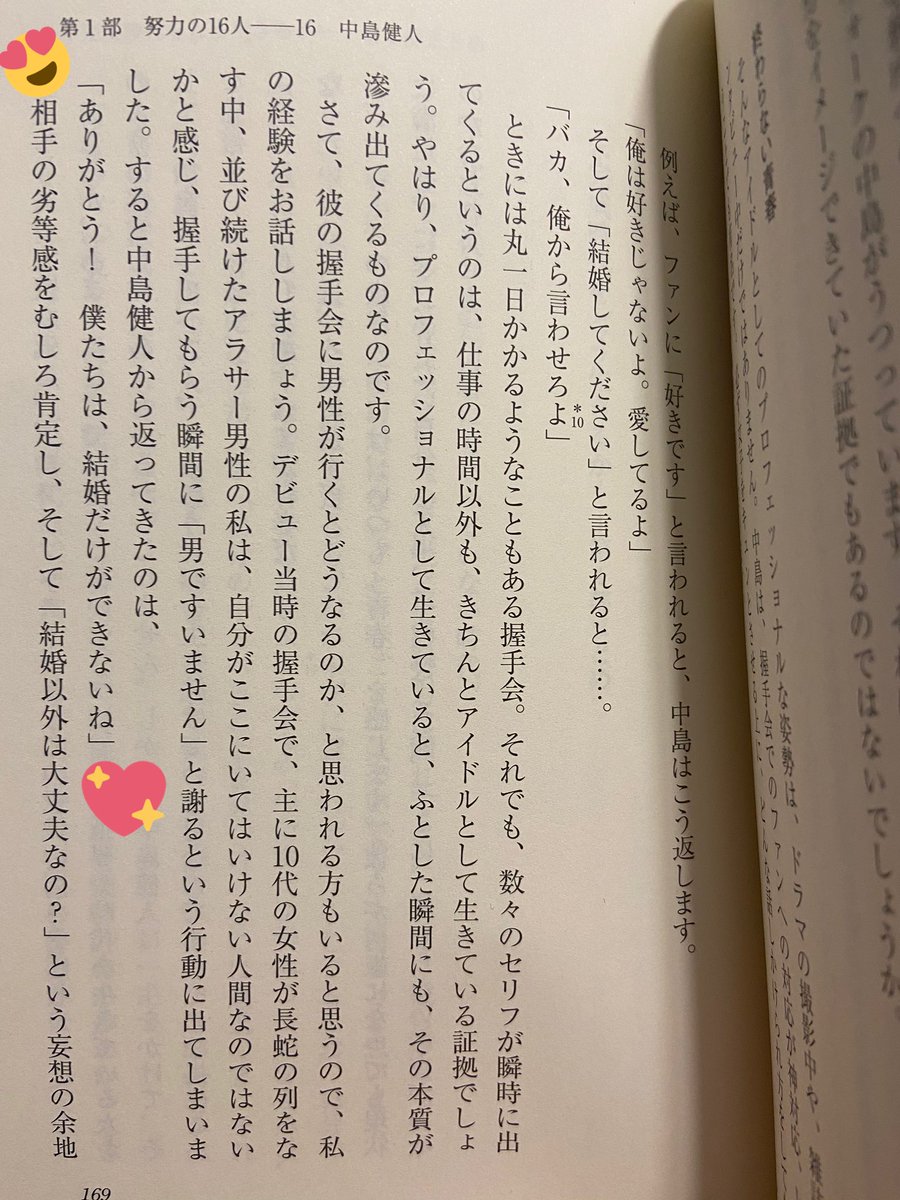 の中島がうつっています。
イメージできていた証拠でもあるのではないでしょうか。
アイドルとしてのプロフェッショナルな姿勢は、ドラマの撮影中や、
ありません。中島は、握手会でのファンへの対応が神対応、
キュンとさせる上に、どんな話しかけられ方をして
第1部 努力の16人――16 中島健人
例えば、ファンに「好きです」と言われると、中島はこう返します。
「俺は好きじゃないよ。愛してるよ」
そして「結婚してください」と言われると……。
「バカ、俺から言わせろよ*10」
ときには丸一日かかるようなこともある握手会。それでも、数々のセリフが瞬時に出
てくるというのは、仕事の時間以外も、きちんとアイドルとして生きている証拠でしょ
う。やはり、プロフェッショナルとして生きていると、ふとした瞬間にも、その本質が
滲み出てくるものなのです。
さて、彼の握手会に男性が行くとどうなるのか、と思われる方もいると思うので、私
の経験をお話ししましょう。デビュー当時の握手会で、主に10代の女性が長蛇の列をな
す中、並び続けたアラサー男性の私は、自分がここにいてはいけない人間なのではない
かと感じ、握手してもらう瞬間に「男ですいません」と謝るという行動に出てしまいま
した。すると中島健人から返ってきたのは、
「ありがとう！ 僕たちは、結婚だけができないね」
相手の劣等感をむしろ肯定し、そして「結婚以外は大丈夫なの？」という妄想の余地
169